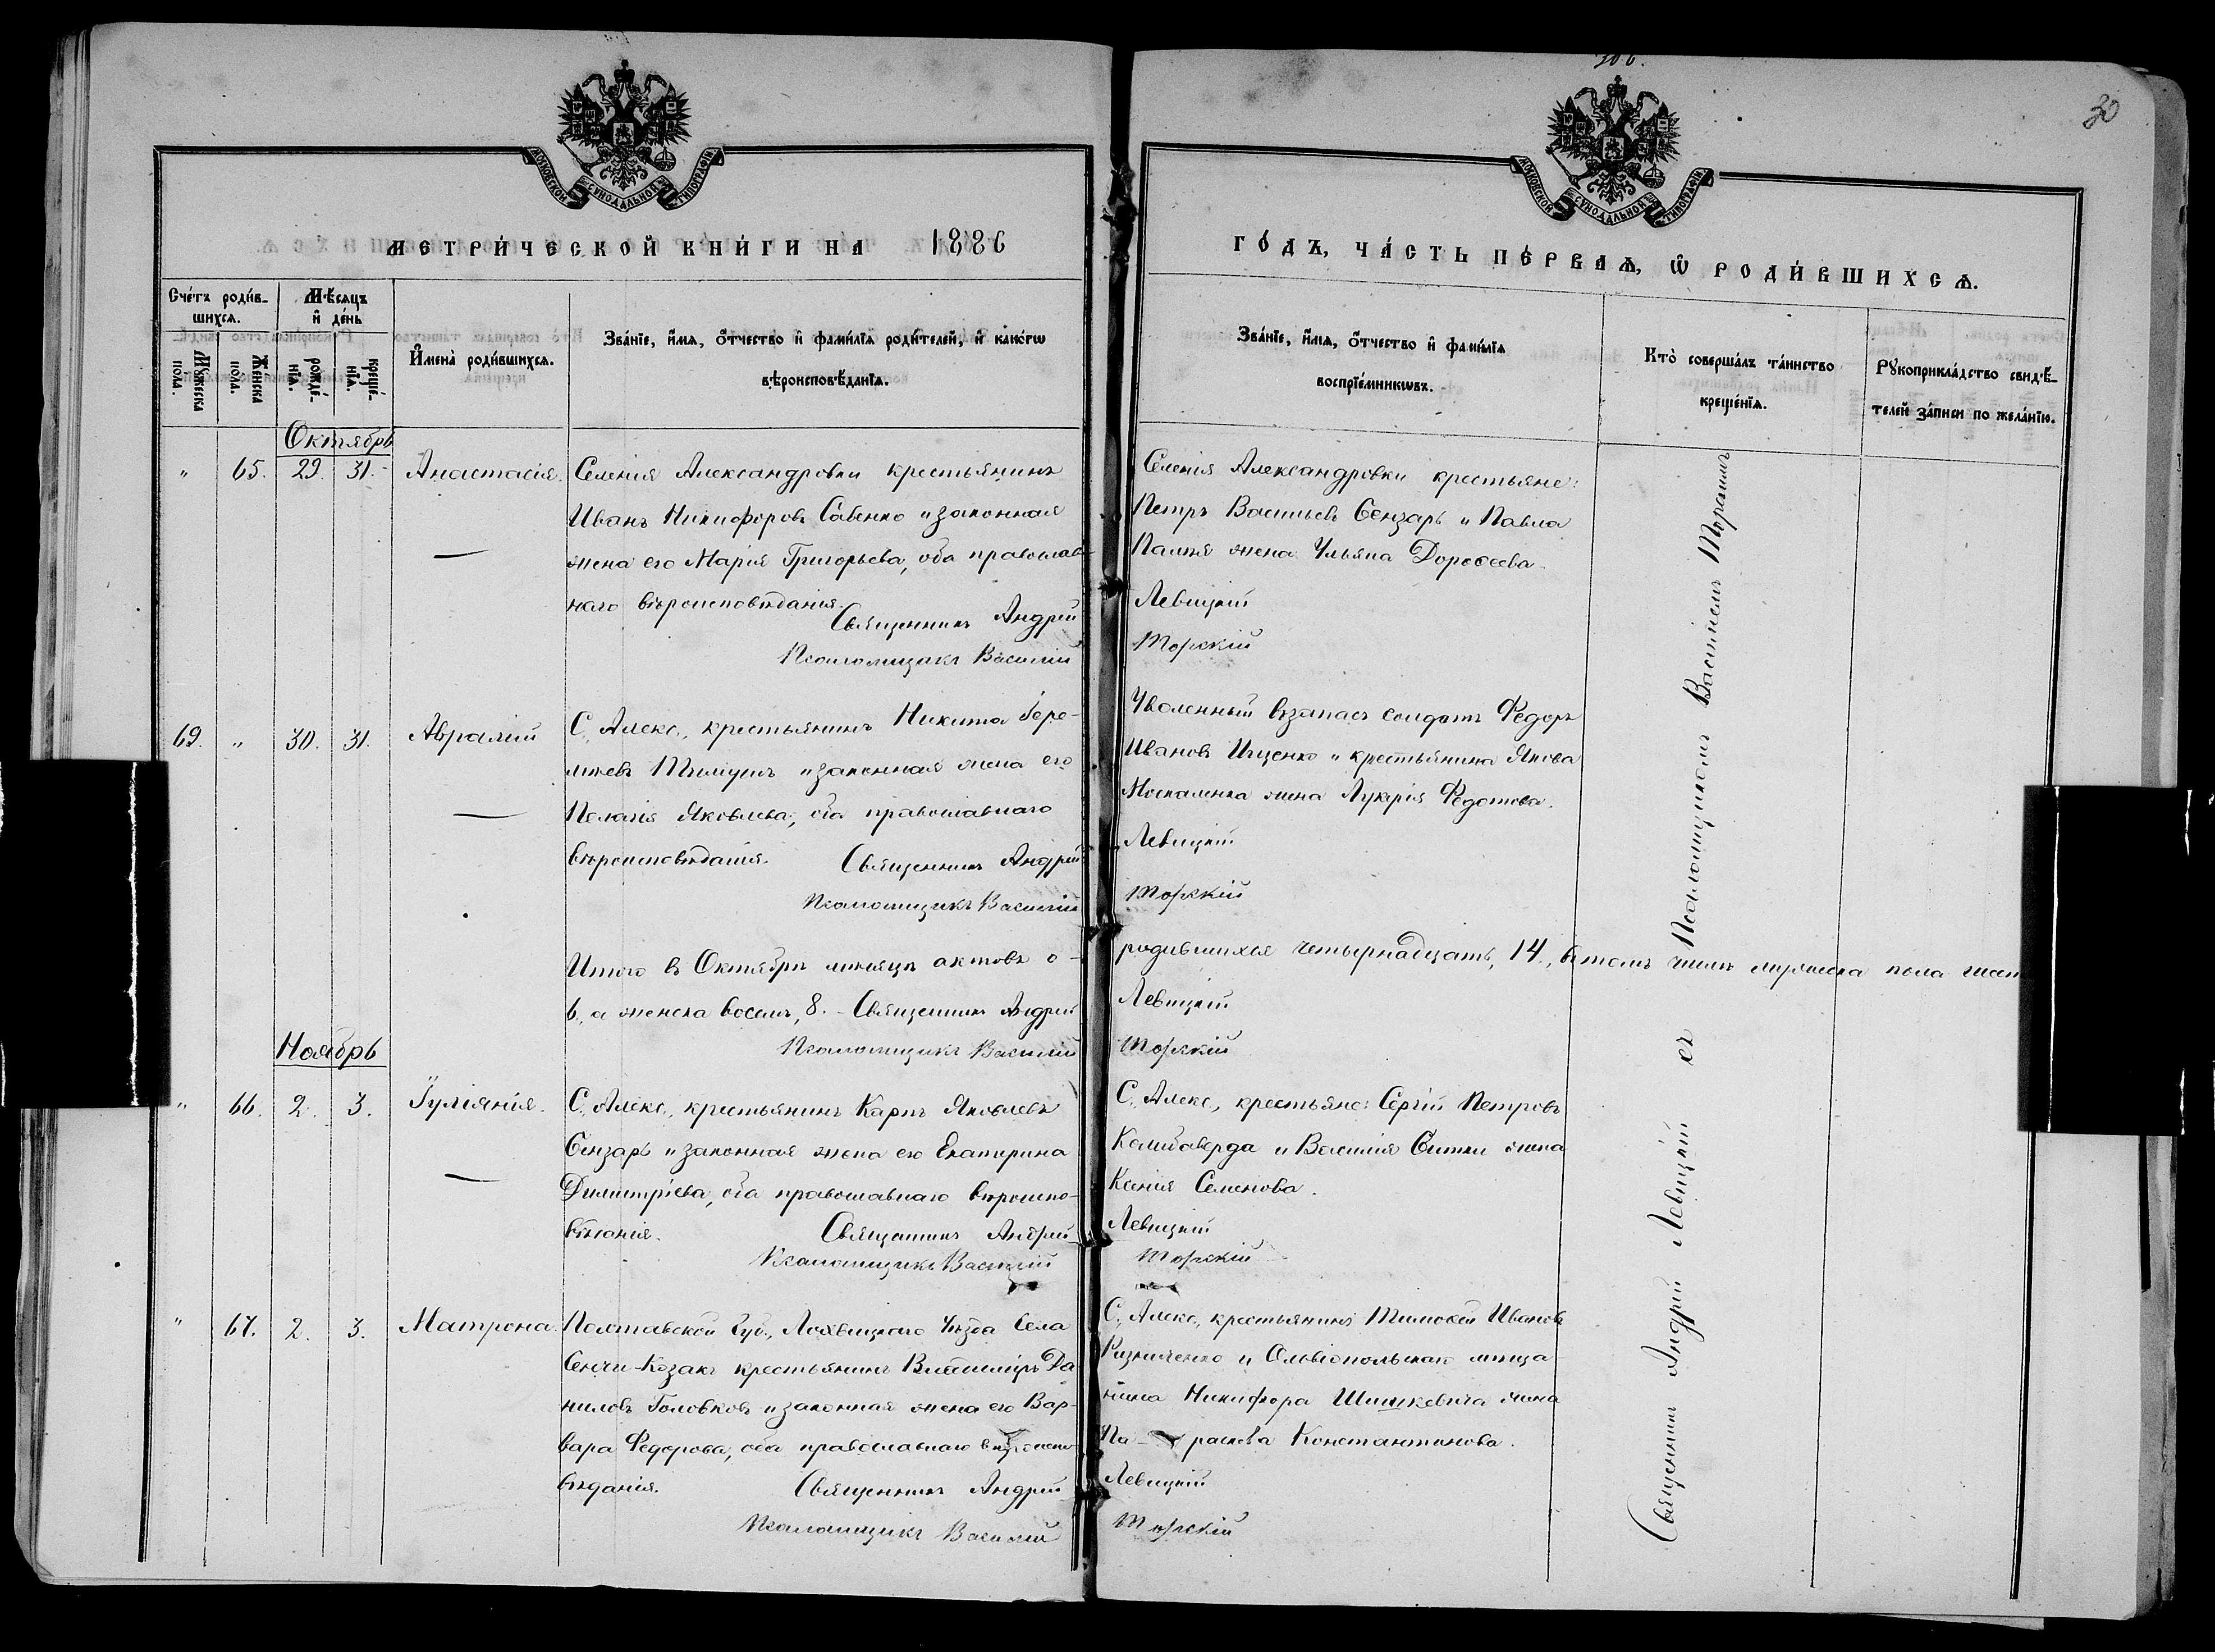 30
МОСКОВСКОЙ СУНОДАЛЬНОЙ ТИПОГРАФІИ
МОСКОВСКОЙ СУНОДАЛЬНОЙ ТИПОГРАФІИ
МЕТРИ́ЧЕСКОЙ КНИ́ГИ НА 1886
ГО́ДЪ, ЧА́СТЬ ПЕ́РВАѦ, Ѡ РОДИ́ВШИХСѦ.
Сче́тъ роди́в-
шихсѧ.
Мꙋ́жеска
пола.
Же́нска
по́ла.
Мѣ́сяцъ
и҆ де́нь
рожде́-
нїѧ.
креще́-
нїѧ.
И҆мена̀ роди́вшихсѧ.
Зва́нїе, и҆́мѧ, о҆́тчество и҆ фами́лїѧ роди́телей, и҆ како́гѡ
вѣроисповѣ́данїѧ.
Зва́нїе, и҆́мѧ, о҆́тчество и҆ фами́лїѧ
воспрїе́мникѡвъ.
Кто̀ соверша́лъ та́инство
креще́нїѧ.
Рꙋкоприкла́дство свидѣ́-
телей за́писи по жела́нїю.
Октябрь
" 65. 29. 31. Анастасія. Селенія Александровки крестьянинъ
Иванъ Никифоровъ Савенко и законная
жена его Марія Григорьева, оба православ-
наго вѣроисповѣданія.
Священникъ Андрей
Псаломщикъ Василій
Селенія Александровки крестьяне:
Петръ Васильевъ Сензарь и Павла
жена Ульяна Дороѳеева.
Левицкій
Торскій
69. " 30. 31. Аврамій С. Алекс., крестьянинъ Никита Ере-
и законная жена его
Пелагія Яковлева, оба православнаго
вѣроисповѣданія. Священникъ Андрей
Псаломщикъ Василій
Уволенный въ запасъ солдатъ Федоръ
Ивановъ Ищенко и крестьянина Якова
Москаленка жена Лукерія Федотова.
Левицкій
Торскій
Итого въ Октябрѣ мѣсяцѣ актовъ о
родившихся четырнадцать, 14., въ томъ числѣ мужеска пола шесть
6., а женска восемь, 8. - Священникъ Андрей
Левицкій
Псаломщикъ Василій
Торскій
Ноябрь
" 66. 2. 3. Іуліянія. С. Алекс., крестьянинъ Карпъ Яковлевъ
Сензарь и законная жена его Екатерина
Димитріева, оба православнаго вѣроиспо-
вѣданія. Священникъ Андрей
Псаломщикъ Василій
С. Алекс., крестьяне: Сергій Петровъ
Калибаберда и Василія Ситки жена
Ксенія Семенова.
Левицкій
Торскій
" 67. 2. 3. Матрона. Полтавской губ., Лохвицкаго Уѣзда Села
Сенчи-Козакъ крестьянинъ Владиміръ Да-
ниловъ Головковъ и законная жена его Вар-
вара Федорова, оба православнаго вѣроиспо-
вѣданія. Священникъ Андрей
Псаломщикъ Василій
С. Алекс., крестьянинъ Тимоѳей Ивановъ
Ризниченко и Ольвіопольскаго мѣща-
нина Никифора Шишкевича жена
Па-раскева Константинова.
Левицкій
Торскій
Священникъ Андрей Левицкій съ Псаломщикомъ Василіемъ Торскимъ